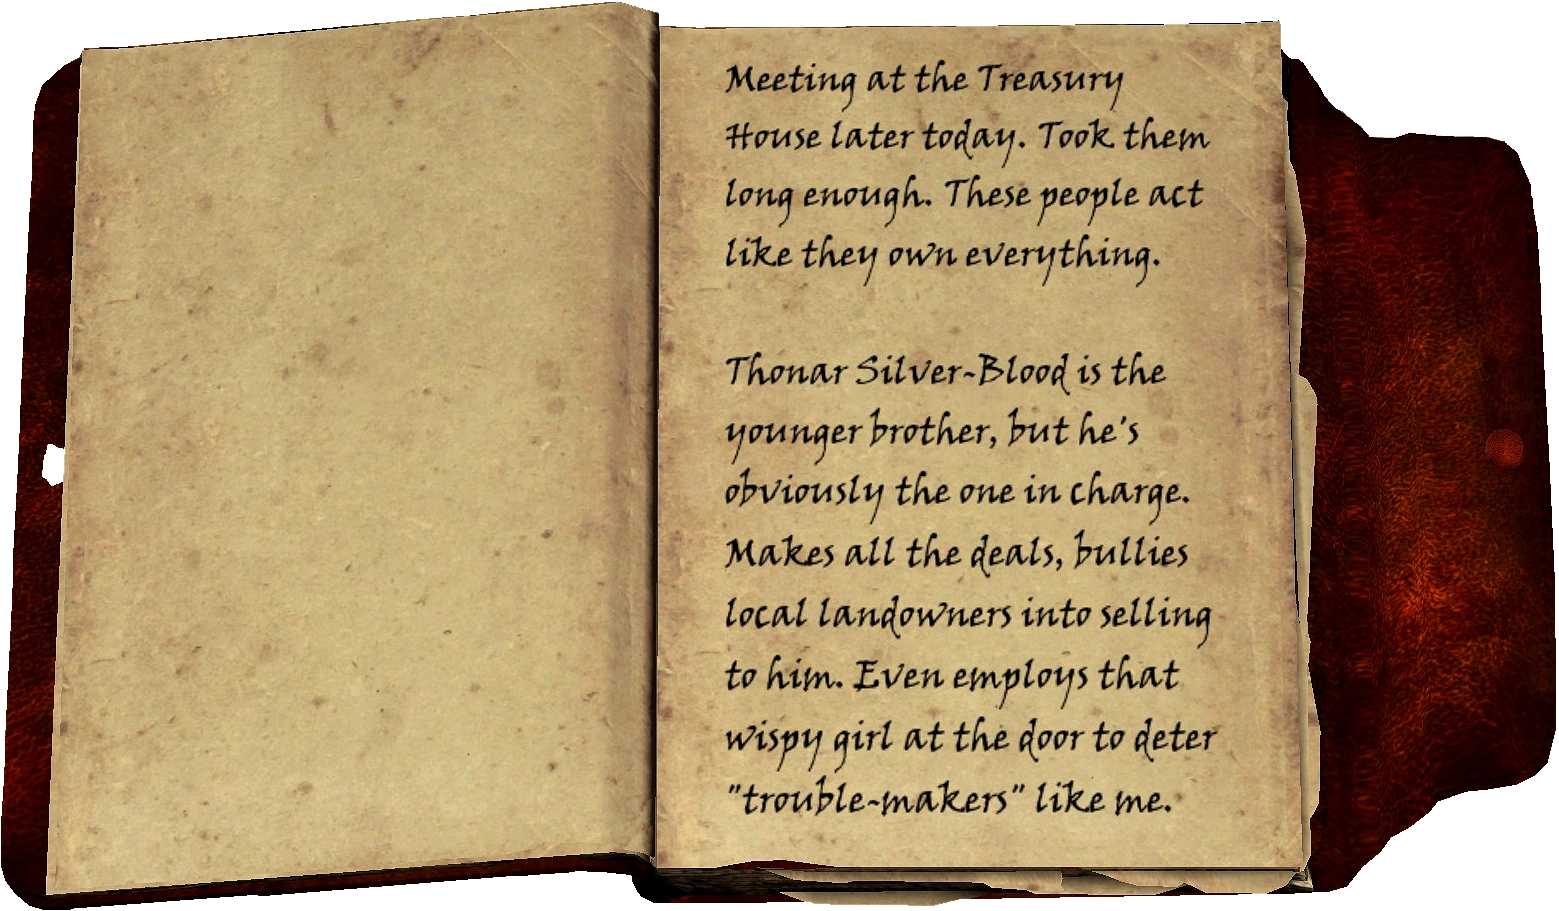 Meeting at the Treasury
House later today. Took them
long enough. These people act
like they own everything.
Thonar Silver-Blood is the
younger brother, but he's
obviously the one in charge.
Makes all the deals, bullies
local landowners into selling
to him. Even employs that
wispy girl at the door to deter
"trouble-makers" like me.